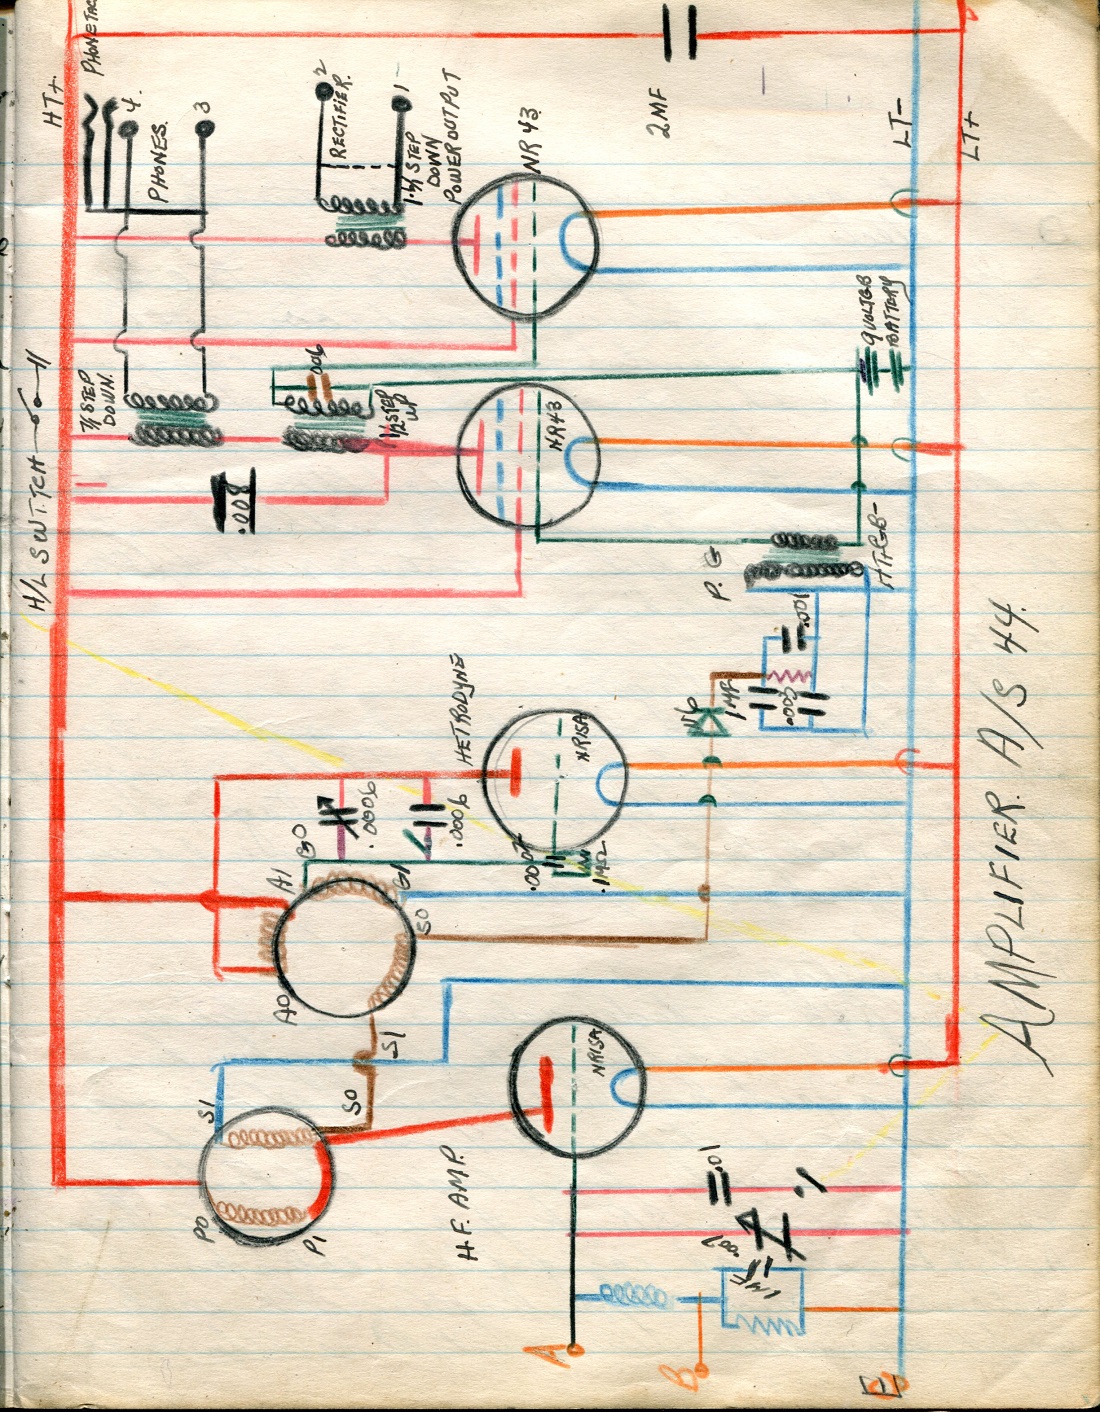 HT+
PHONE JAC
H/L SWITCH
4.
PHONES.
3
2
RECTIFIER.
1
1·1/1 STEP
DOWN
POWER OUTPUT
NR43
2MF
LT-
LT+
7/1 STEP
DOWN.
.006
1/2 STEP
UP
.008
NR43
9 VOLT GB
BATTERY
HT+GB-
P. G
.001
.003
1MF
W6
HETRODYNE
NR15A
.0006
.0006
GO
A1
G1
.0002
.1MΩ
AO
SO
S1
S1
SO
PO
P1
H.F. AMP.
NR15A
.01
.007
1MF
A
B
E
AMPLIFIER. A/S 44.